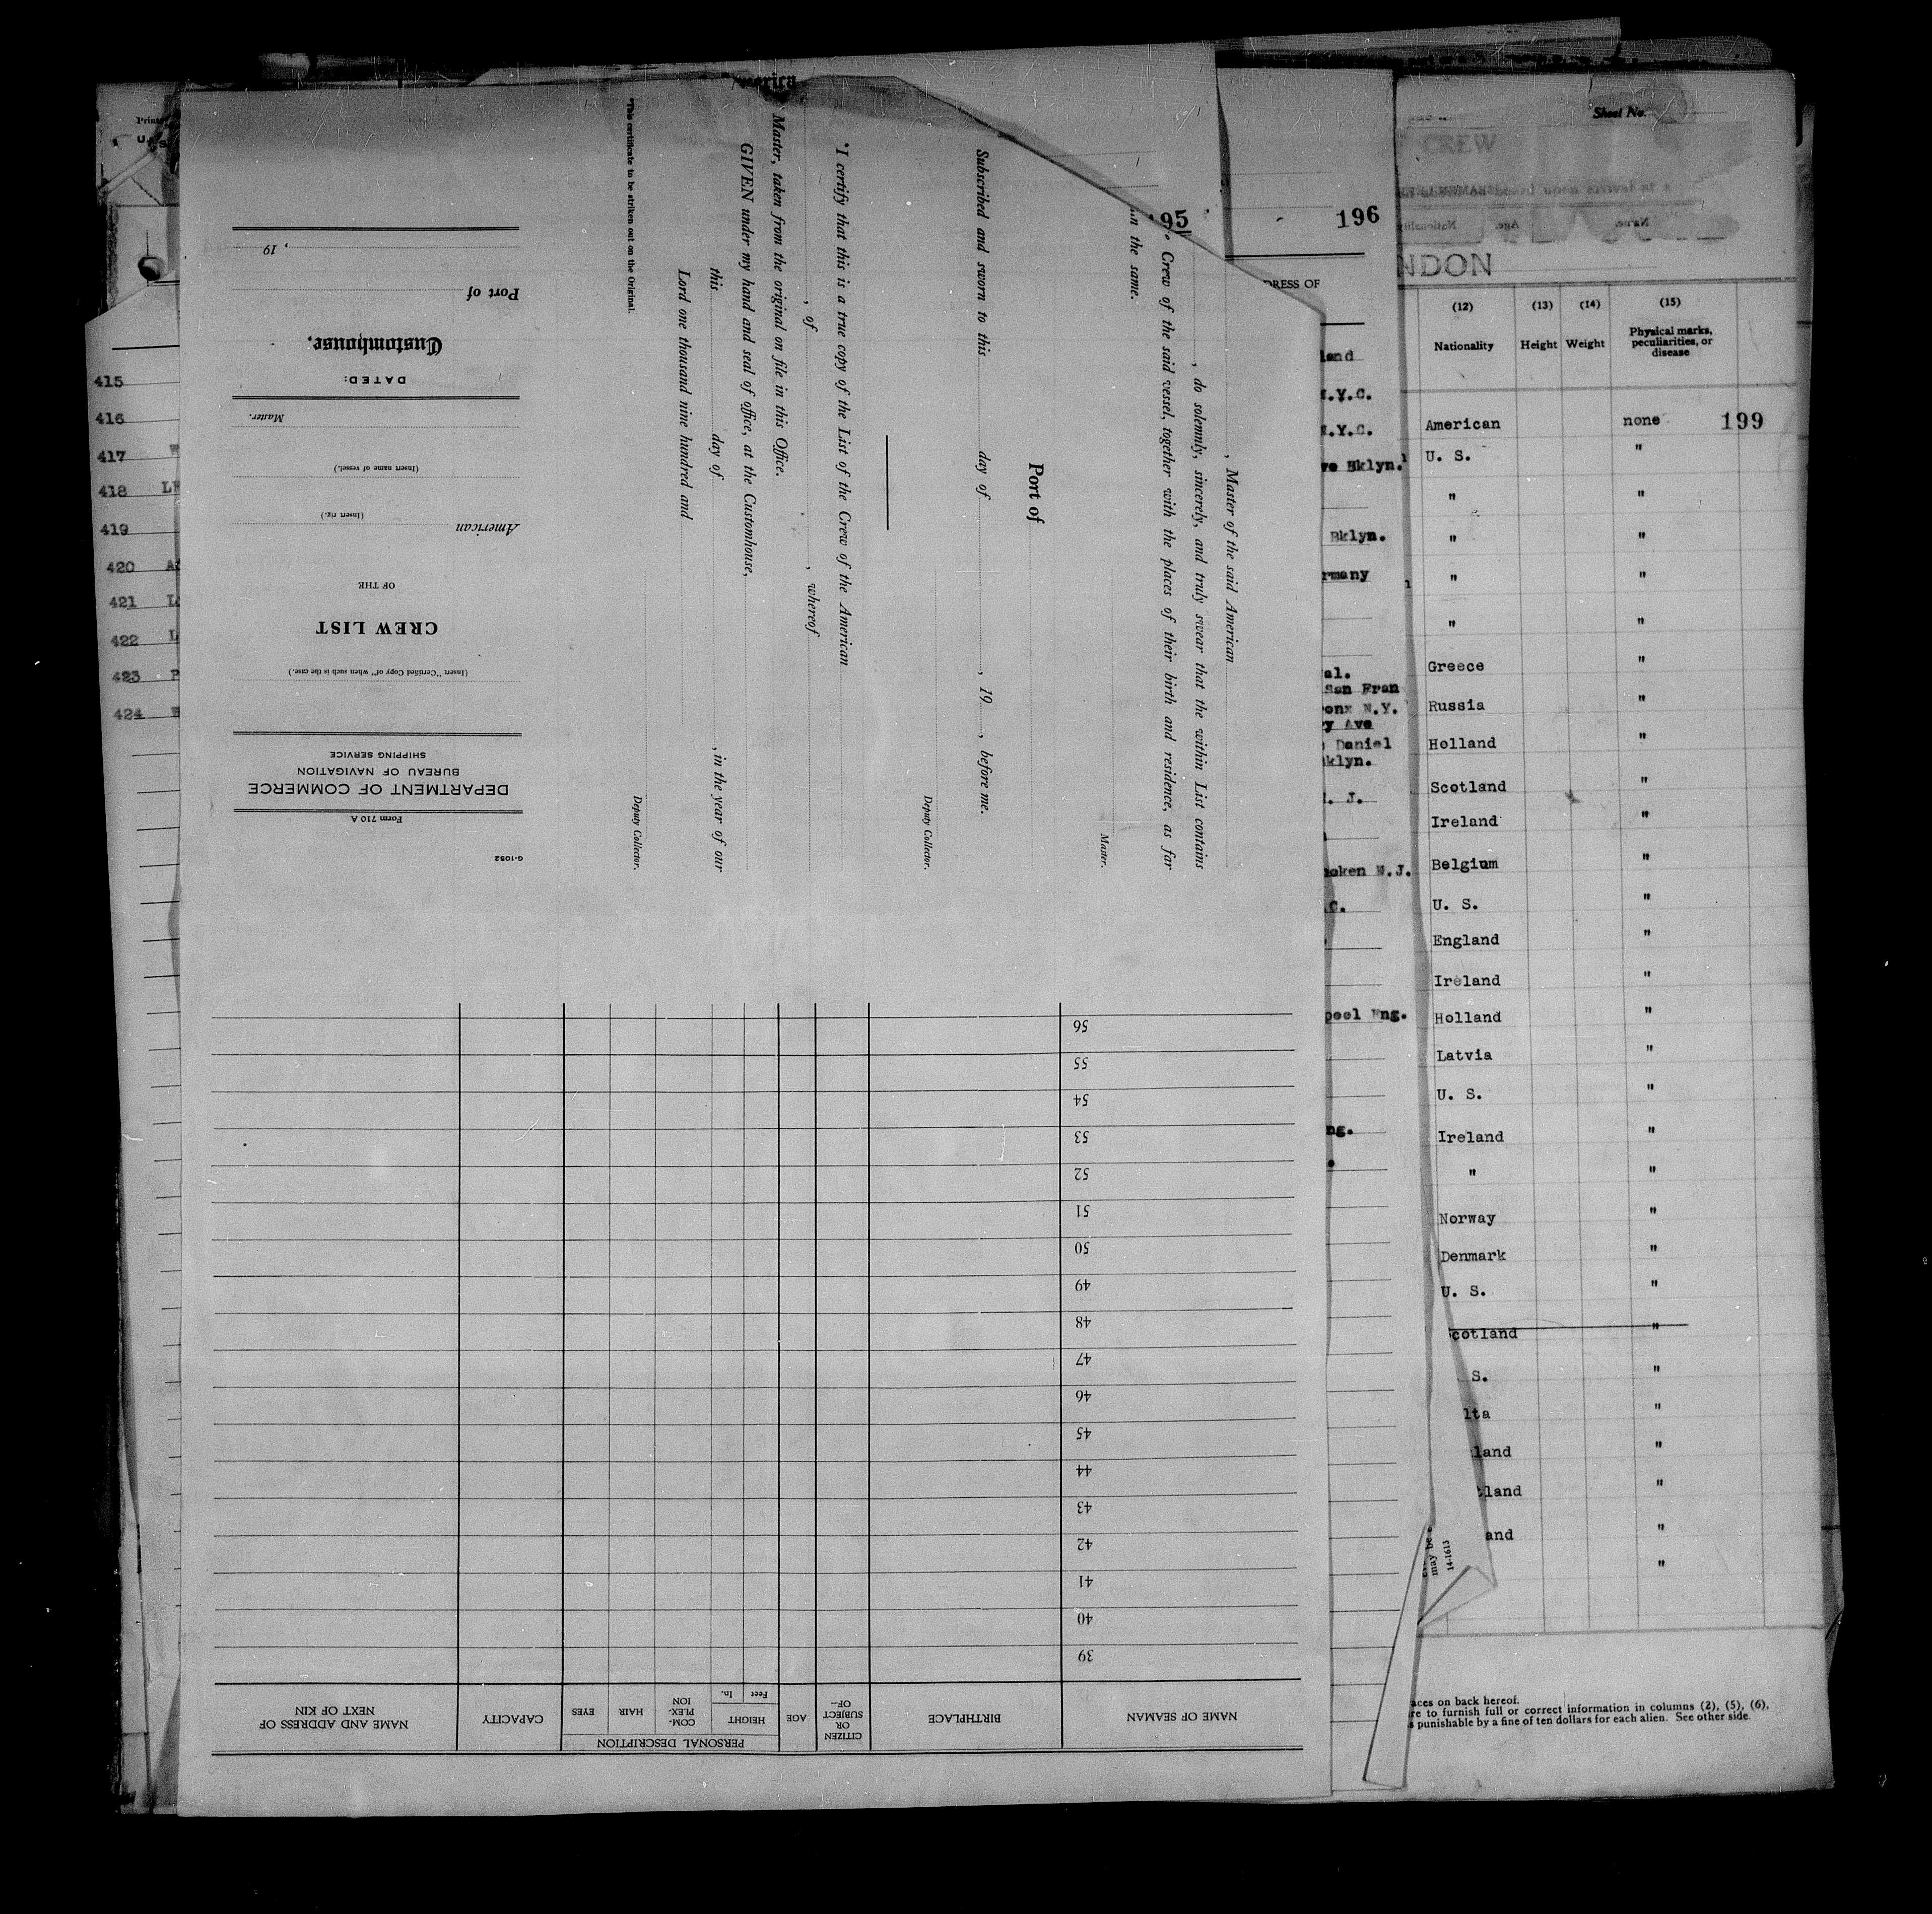 Sheet No.
CREW
NDON
(12) (13) (14) (15)
Nationality Height Weight Physical marks, peculiarities, or disease
American none 199
U. S. "
" "
" "
" "
" "
Greece "
Russia "
Holland "
Scotland "
Ireland "
Belgium "
U. S. "
England "
Ireland "
Holland "
Latvia "
U. S. "
Ireland "
" "
Norway "
Denmark "
U. S. "
cotland "
S. "
lta "
land "
tland "
and "
"
aces on back hereof.
re to furnish full or correct information in columns (2), (5), (6),
s punishable by a fine of ten dollars for each alien. See other side.
may be
14-1613
196
DRESS OF
land
N.Y.C.
N.Y.C.
ve Bklyn.
Bklyn.
rmany
al.
San Fran
ronx N.Y.
ry Ave
Daniel
klyn.
N. J.
oken N.J.
.C.
pool Eng.
ng.
95
415
416
417 W
418 LE
419
420
421
422 L
423 P
424 W
, Master of the said American
, do solemnly, sincerely, and truly swear that the within List contains
Crew of the said vessel, together with the places of their birth and residence, as far
in the same.
Master.
Port of
Subscribed and sworn to this day of , 19 , before me.
Deputy Collector.
*I certify that this is a true copy of the List of the Crew of the American
, of , whereof
Master, taken from the original on file in this Office.
GIVEN under my hand and seal of office, at the Customhouse,
this day of , in the year of our
Lord one thousand nine hundred and
Deputy Collector.
*This certificate to be striken out on the Original.
G-1052
Form 710 A
DEPARTMENT OF COMMERCE
BUREAU OF NAVIGATION
SHIPPING SERVICE
(Insert "Certified Copy of" when such is the case.)
CREW LIST
OF THE
American
(Insert rig.)
(Insert name of vessel.)
Master.
DATED:
Customhouse,
Port of
, 19
NAME OF SEAMAN BIRTHPLACE CITIZEN OR SUBJECT OF— AGE PERSONAL DESCRIPTION HEIGHT Feet In. COM-PLEX-ION HAIR EYES CAPACITY NAME AND ADDRESS OF NEXT OF KIN
39
40
41
42
43
44
45
46
47
48
49
50
51
52
53
54
55
56